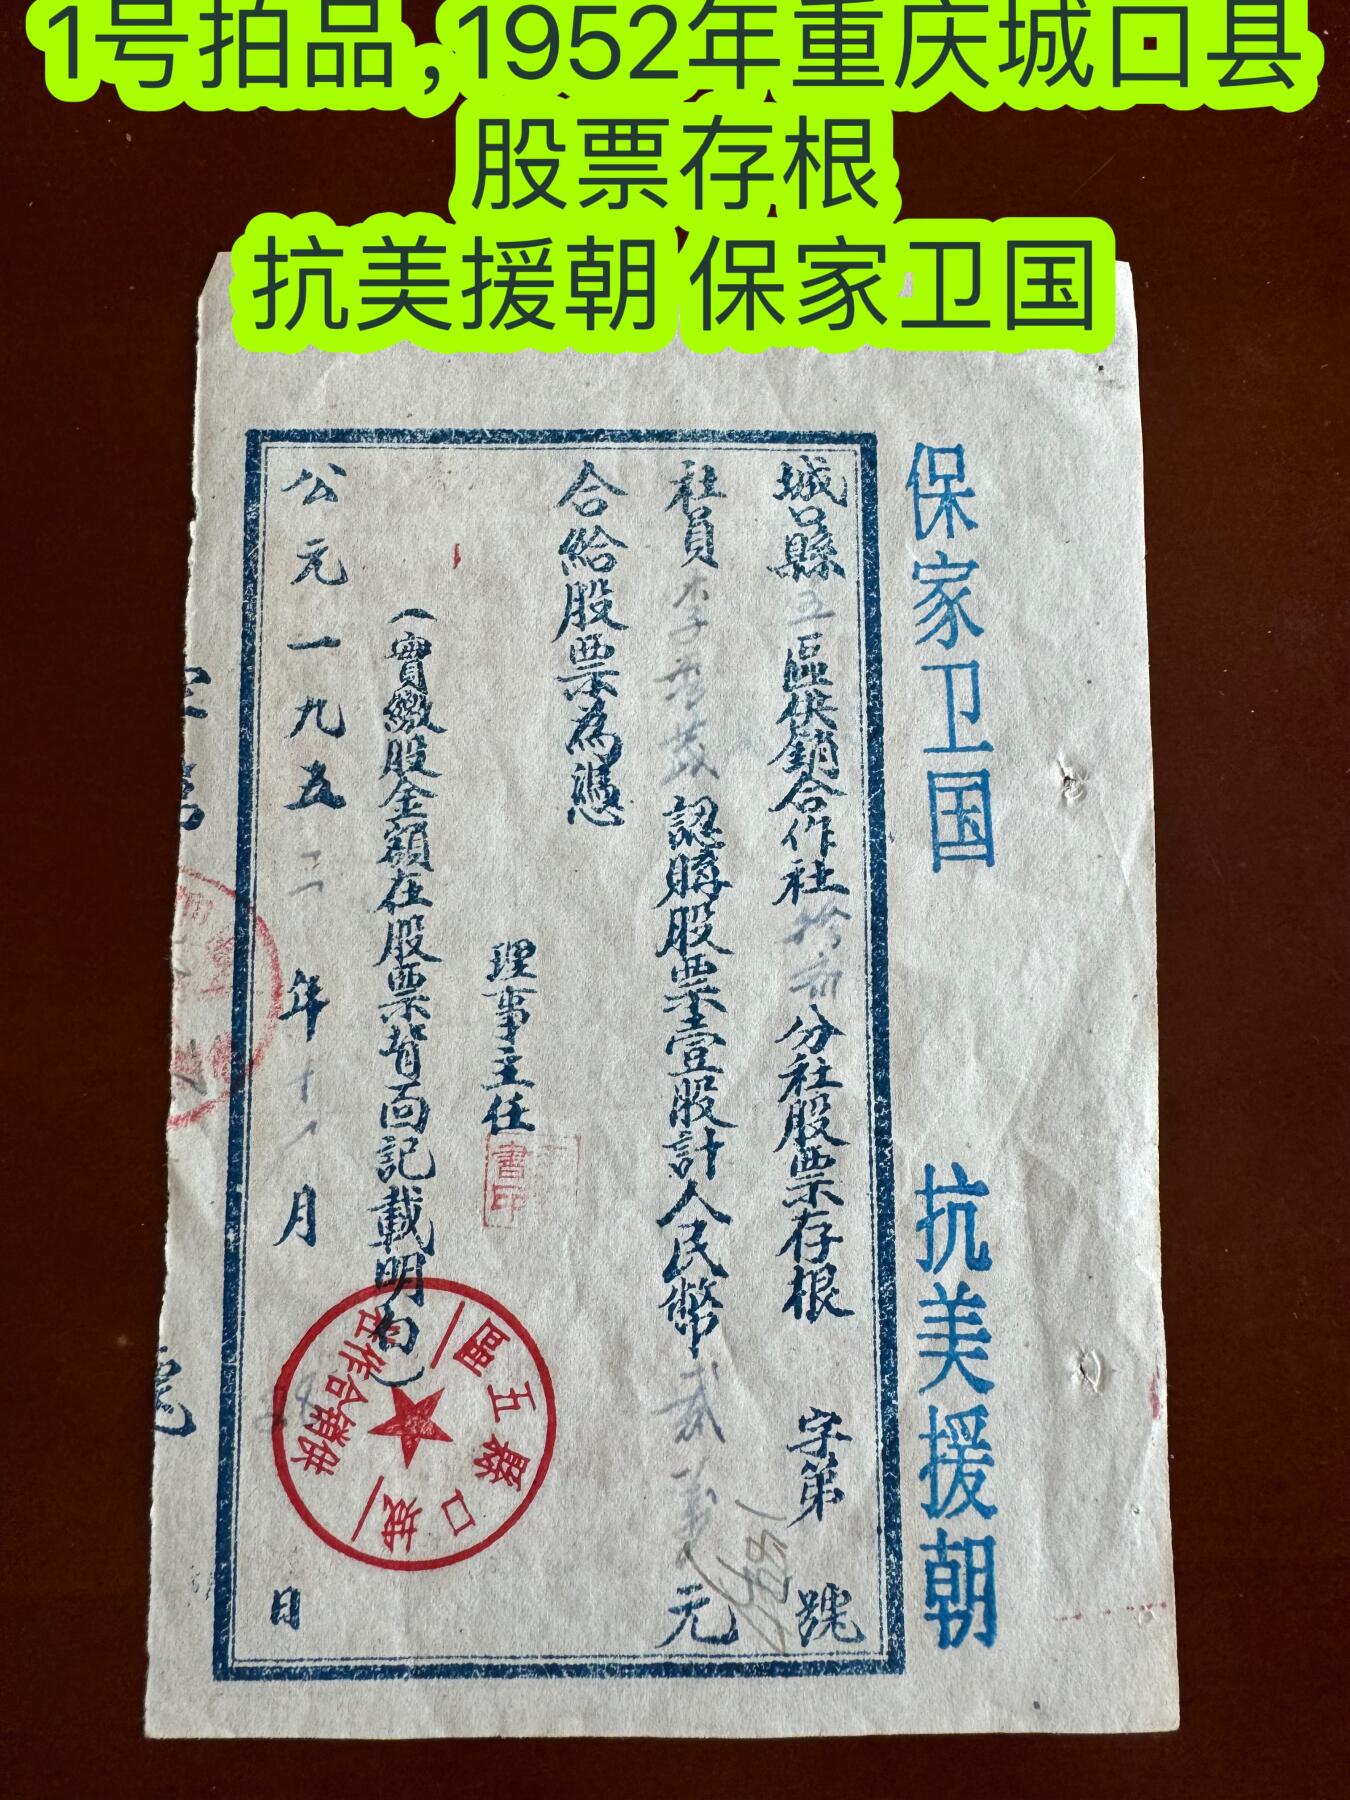 1号拍品,1952年重庆城口县
股票存根
抗美援朝 保家卫国
保家卫国 抗美援朝
城口縣五區供銷合作社拾分社股票存根 字第 號
社員李茂認購股票壹股計人民幣貳萬元
合給股票為憑
理事主任
書印
(實繳股金額在股票背面記載明白)
公元一九五二年十月 日
城口縣五區
供銷合作社
號